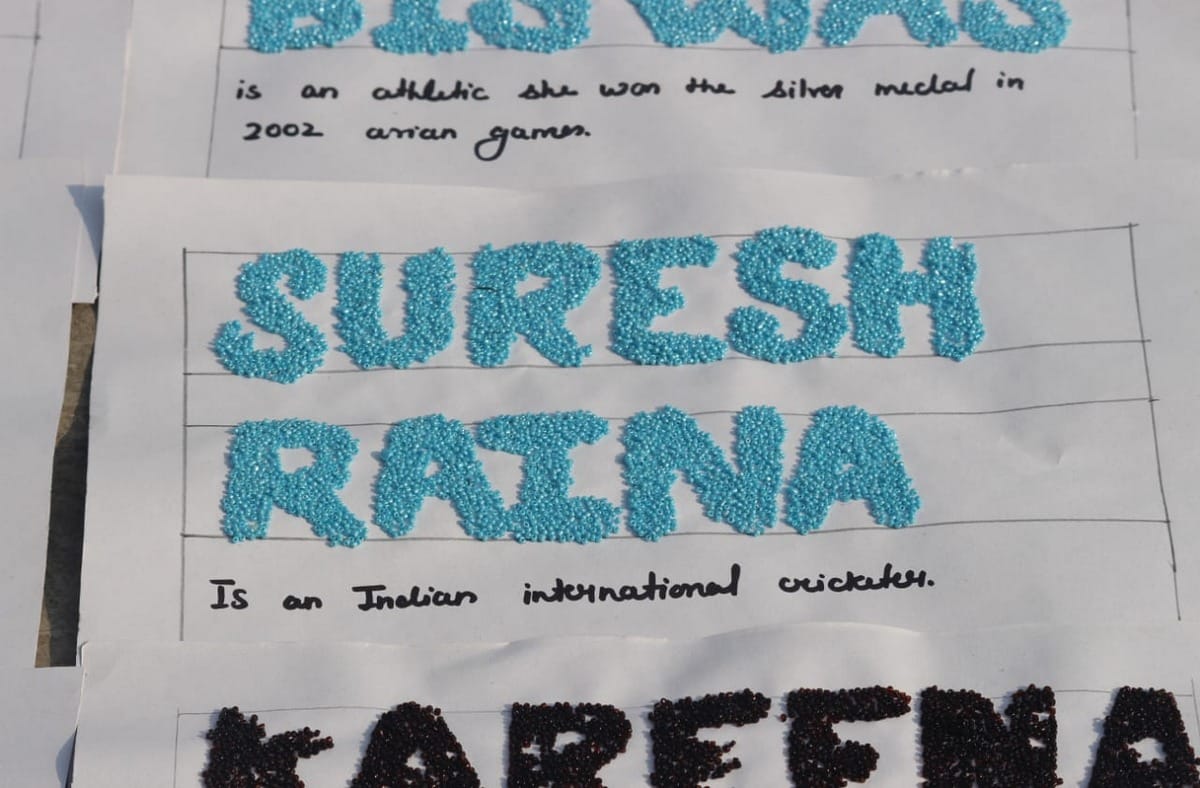 BISWAS
is an athletic she won the silver medal in
2002 asian games.
SURESH
RAINA
Is an Indian international cricketer.
KAREENA